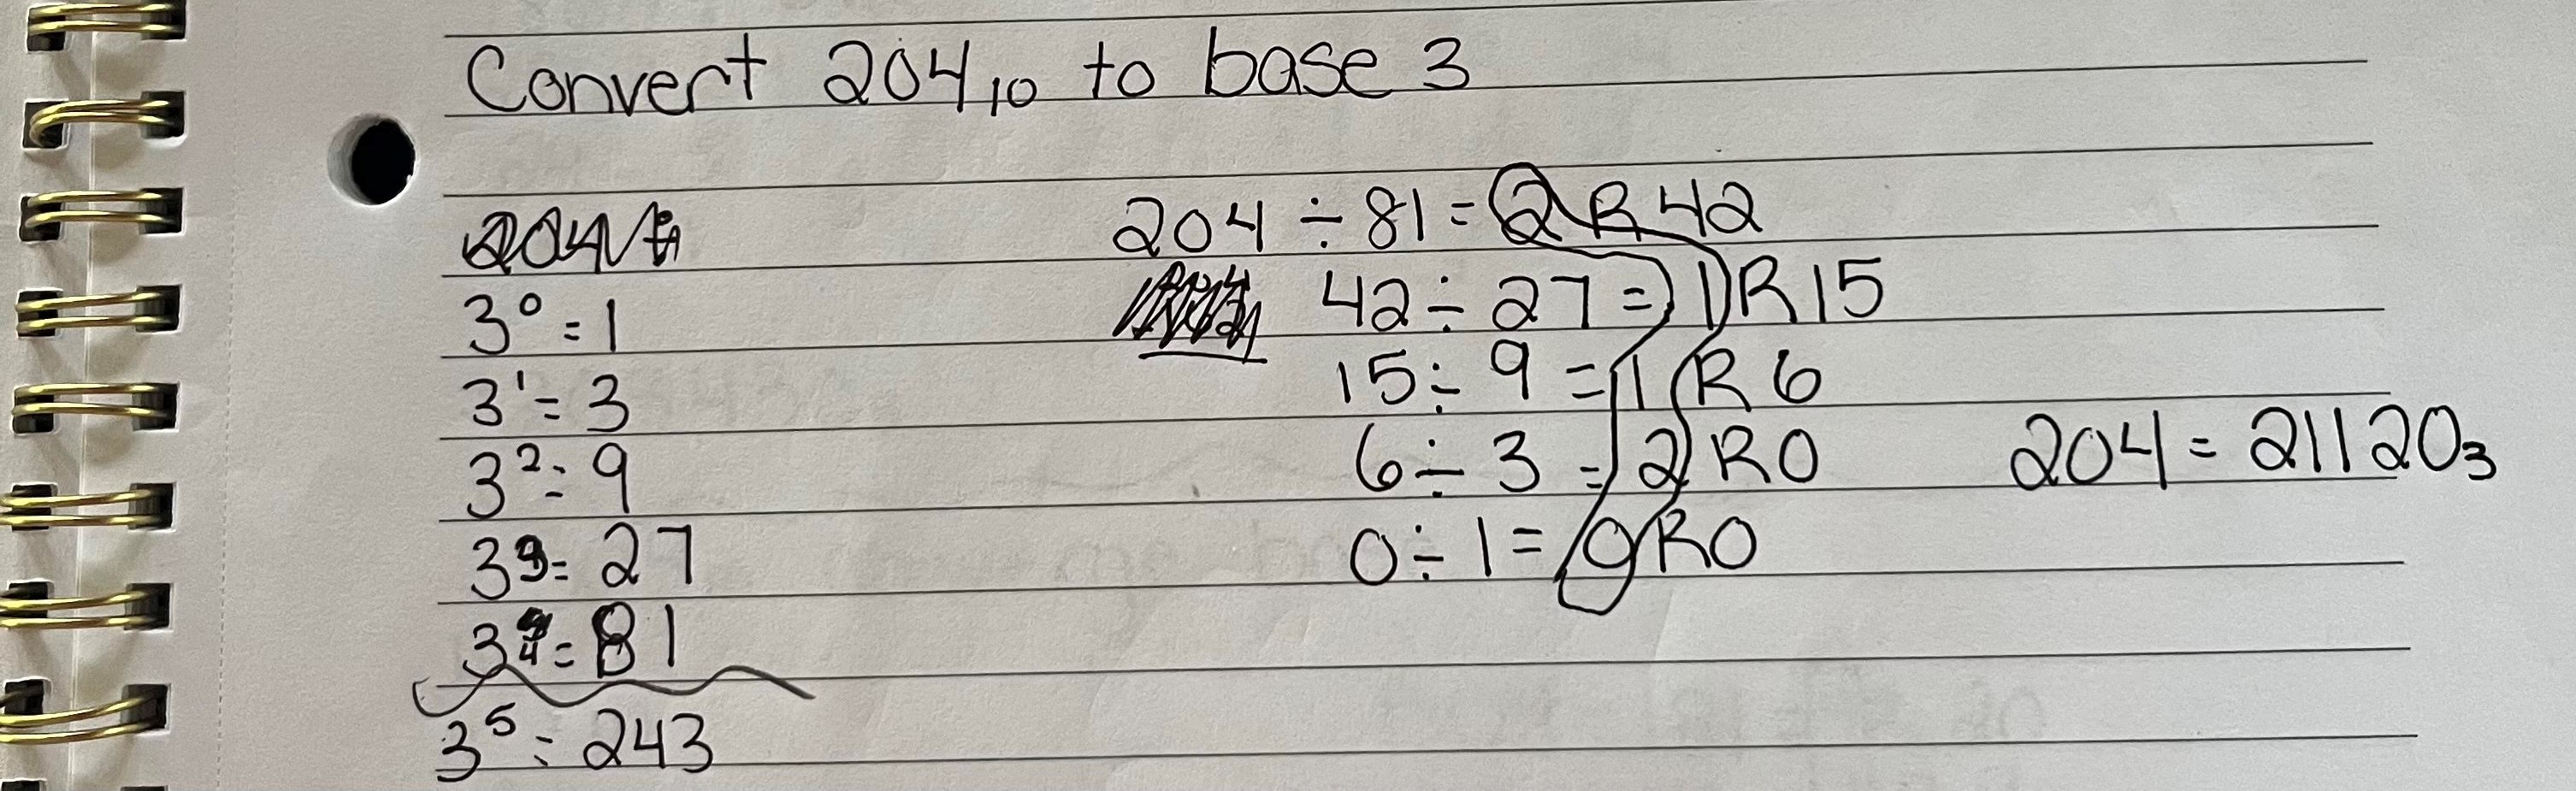 Convert 204₁₀ to base 3
3⁰ = 1
3¹ = 3
3² = 9
3³ = 27
3⁴ = 81
3⁵ = 243
204 ÷ 81 = 2 R 42
42 ÷ 27 = 1 R 15
15 ÷ 9 = 1 R 6
6 ÷ 3 = 2 R 0
0 ÷ 1 = 0 R 0
204 = 21120₃